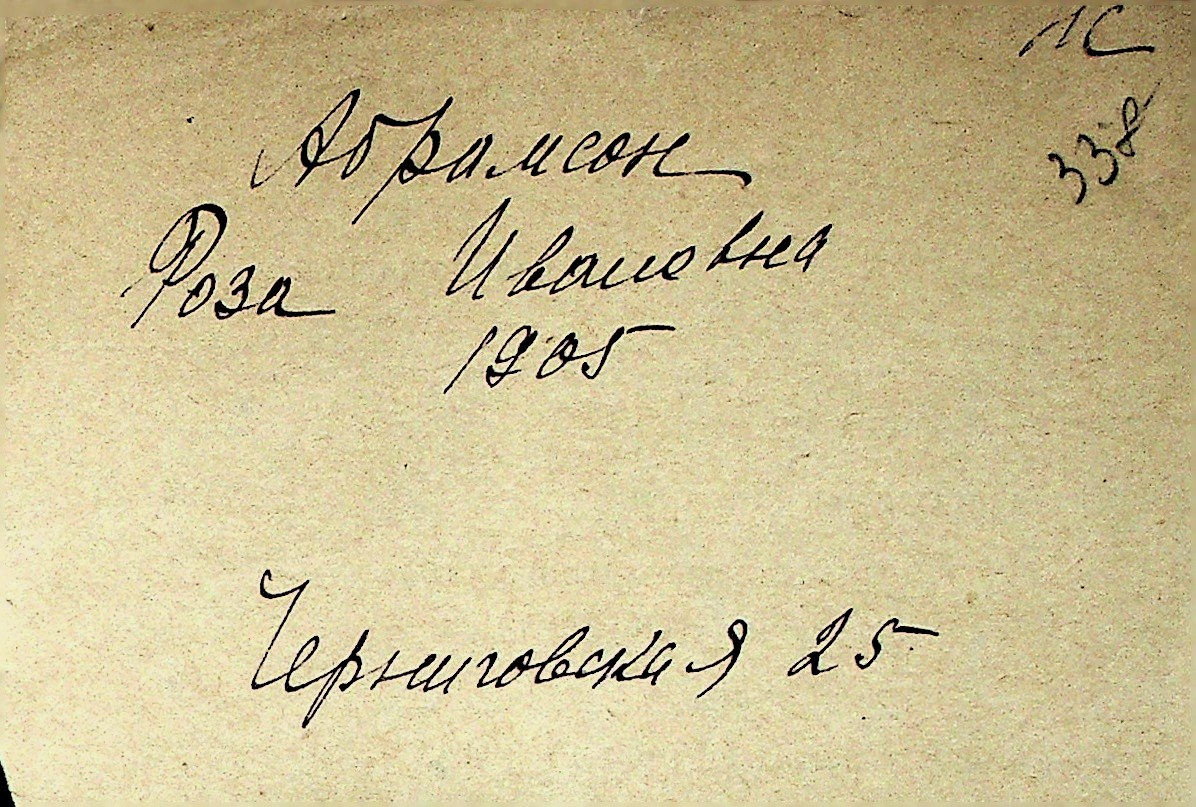 1С
338
Абрамсон
Роза Ивановна
1905
Черниговская 25